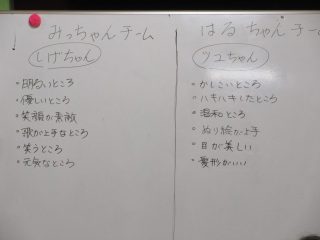 みっちゃんチーム
しげちゃん
・明るいところ
・優しいところ
・笑顔が素敵
・歌が上手なところ
・笑うところ
・元気なところ
はるちゃんチーム
ツユちゃん
・かしこいところ
・ハキハキしたところ
・温和なところ
・ぬり絵が上手
・目が美しい
・髪形がいい